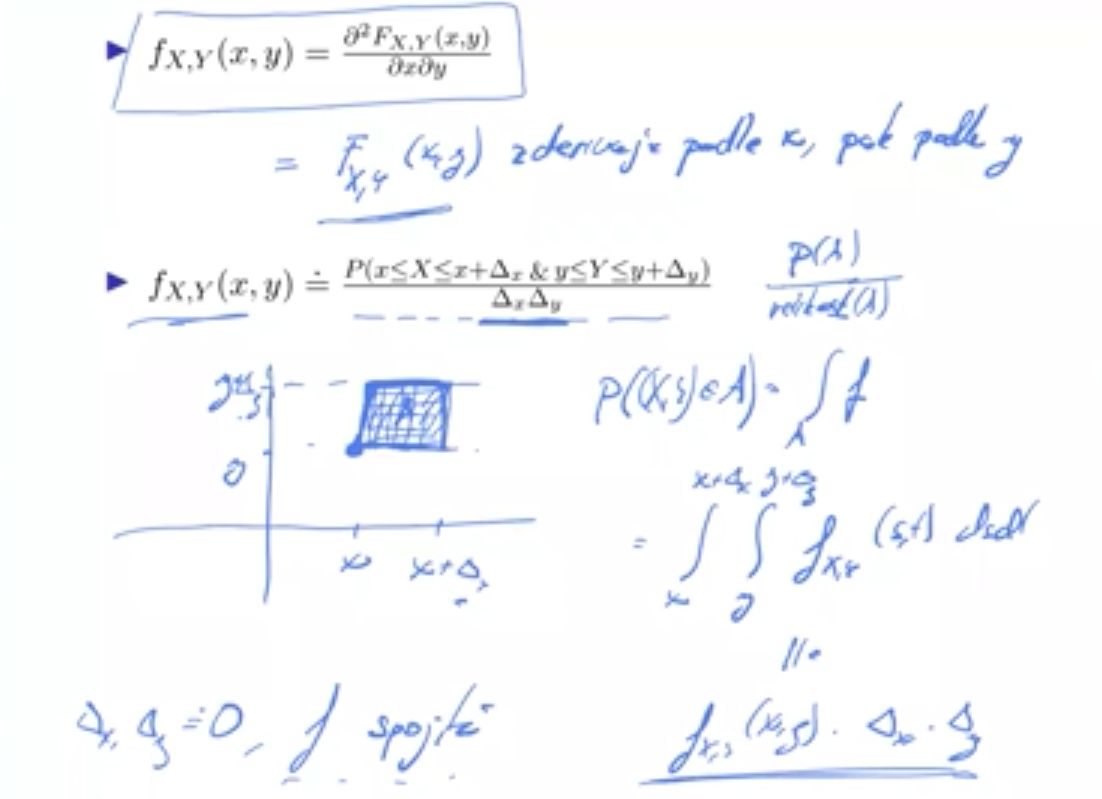 ▶ f_{X,Y}(x, y) = ∂²F_{X,Y}(x,y) / ∂x∂y
= F_{X,Y}(x,y) zderivuje podle x, pak podle y
▶ f_{X,Y}(x, y) ≐ P(x≤X≤x+Δ_x & y≤Y≤y+Δ_y) / Δ_xΔ_y
P(A) / velikost(A)
y+Δ_y
A
P((X,Y)∈A) = ∫_A f
y
= ∫_x^{x+Δ_x} ∫_y^{y+Δ_y} f_{X,Y}(s,t) dsdt
x x+Δ_x
Δ_x, Δ_y ≐ 0, f spojitá
f_{X,Y}(x,y) · Δ_x · Δ_y